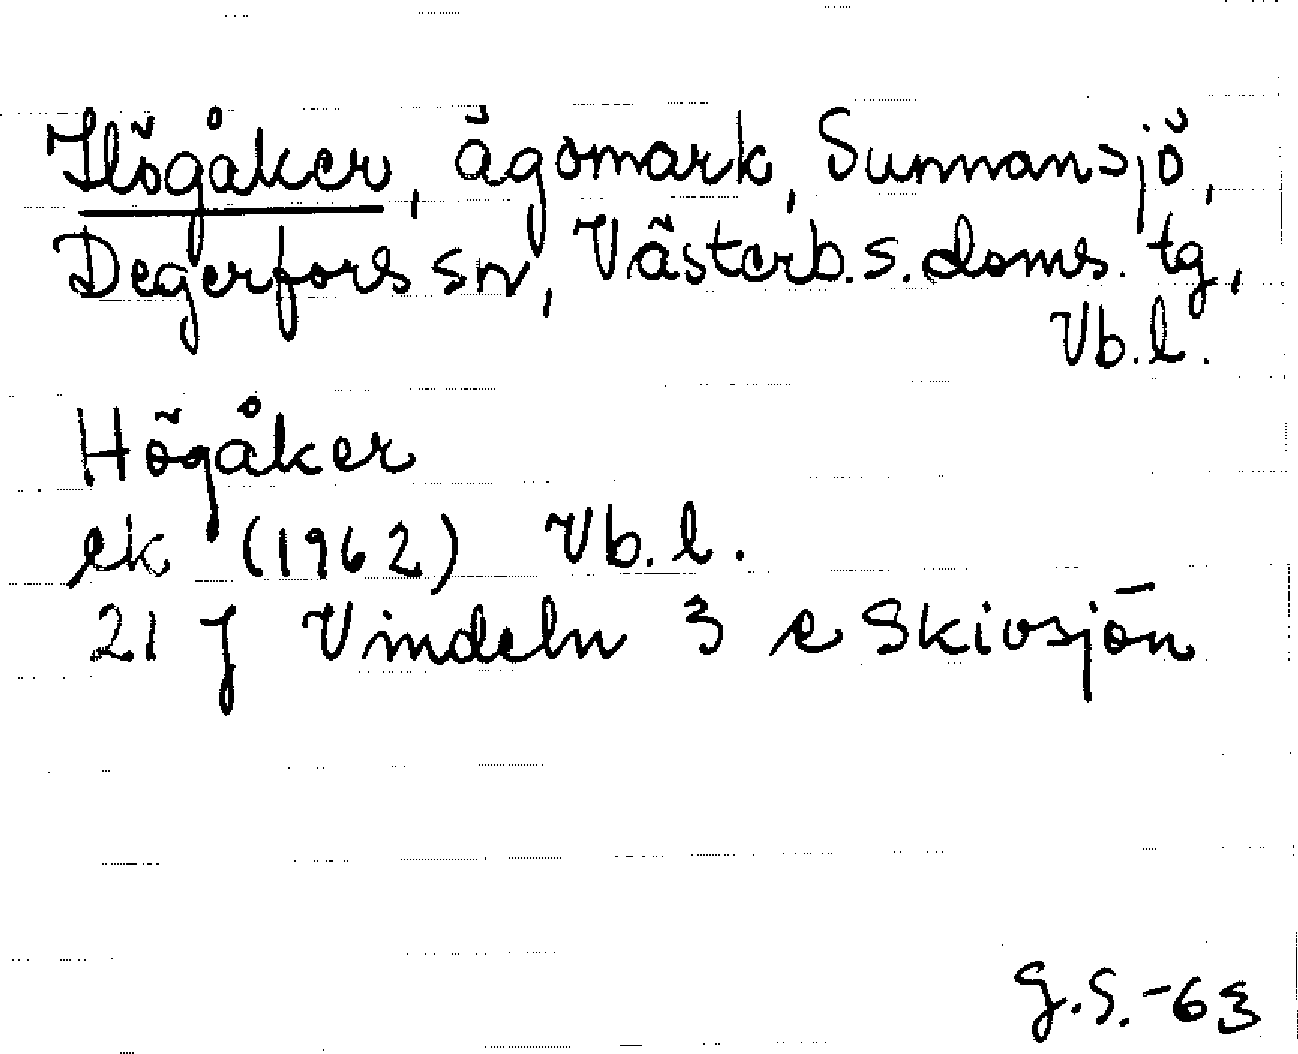 Högåker, ägomark, Sunnansjö,
Degerfors sn, Västerb. s. doms. tg,
Vb. l.
Högåker
ek (1962) Vb. l.
21 J Vindeln 3 e Skivsjön
G.S.-63